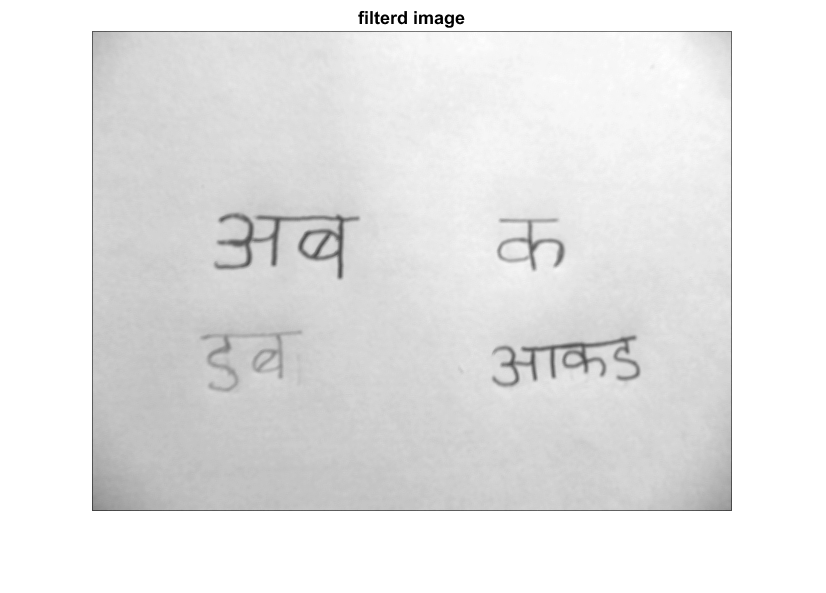 filterd image
अब क
आकड